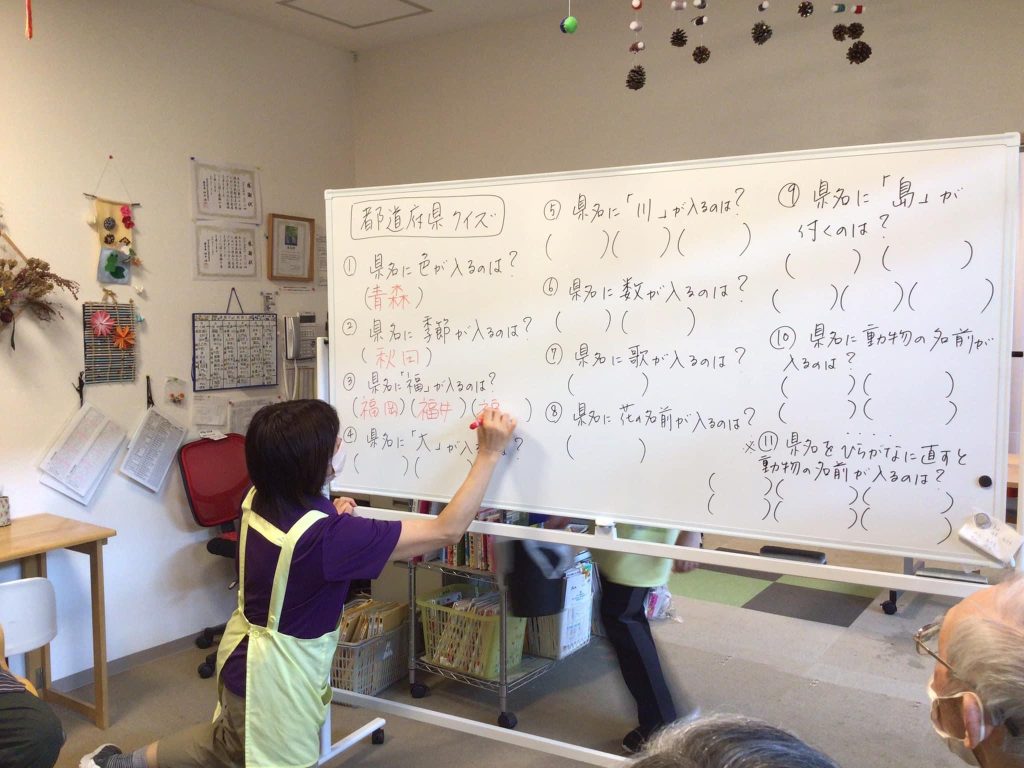 都道府県クイズ
① 県名に色が入るのは?
(青森)
② 県名に季節が入るのは?
(秋田)
③ 県名に「福」が入るのは?
(福岡)(福井)(福 )
④ 県名に「大」が入るのは?
( )( )
⑤ 県名に「川」が入るのは?
( )( )( )
⑥ 県名に数が入るのは?
( )( )
⑦ 県名に歌が入るのは?
( )
⑧ 県名に花の名前が入るのは?
( )
⑨ 県名に「島」が
付くのは?
( )( )
( )( )( )
⑩ 県名に動物の名前が
入るのは?
( )( )
( )( )
※⑪ 県名をひらがなに直すと
動物の名前が入るのは?
( )( )( )
( )( )( )